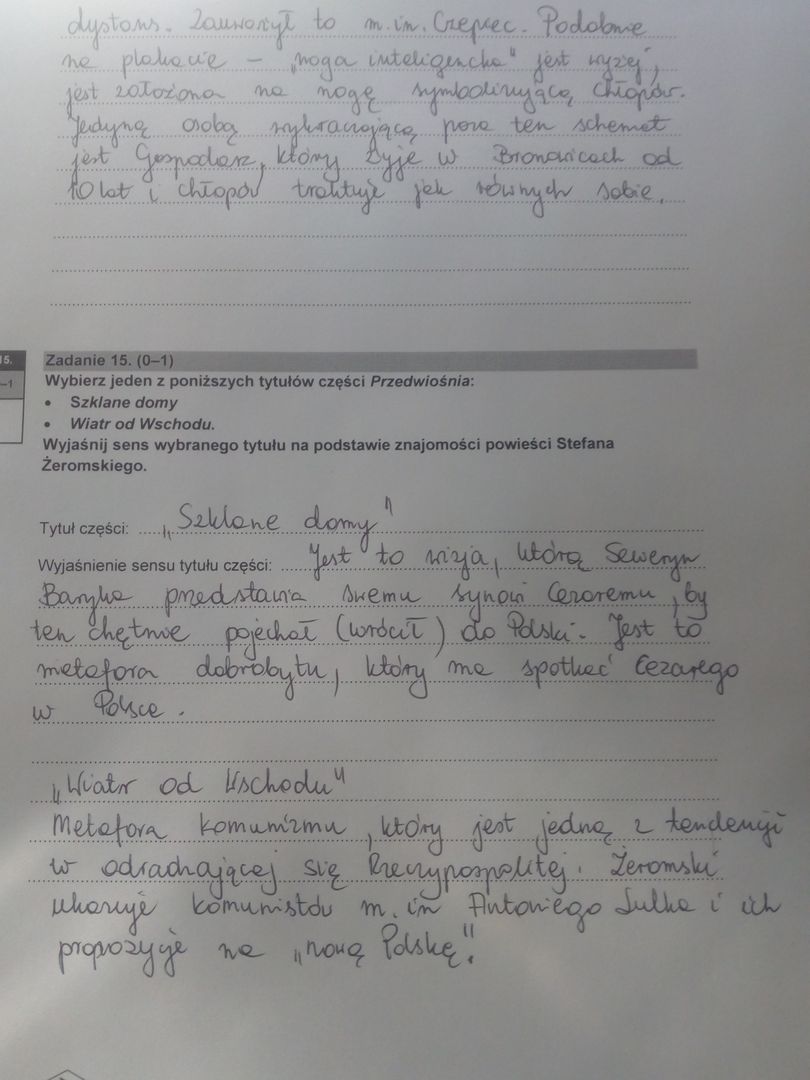 dystans. Zauważył to m.in. Czepiec. Podobnie
na plakacie – „noga inteligencka" jest wyżej,
jest założona na nogę symbolizującą chłopów.
Jedyną osobą wykraczającą poza ten schemat
jest Gospodarz, który żyje w Bronowicach od
10 lat i chłopów traktuje jak równych sobie.
15.
Zadanie 15. (0–1)
–1
Wybierz jeden z poniższych tytułów części Przedwiośnia:
• Szklane domy
• Wiatr od Wschodu.
Wyjaśnij sens wybranego tytułu na podstawie znajomości powieści Stefana
Żeromskiego.
Tytuł części: „Szklane domy"
Wyjaśnienie sensu tytułu części: Jest to wizja, którą Seweryn
Baryka przedstawia swemu synowi Cezaremu, by
ten chętnie pojechał (wrócił) do Polski. Jest to
metafora dobrobytu, który ma spotkać Cezarego
w Polsce.
„Wiatr od Wschodu"
Metafora komunizmu, który jest jedną z tendencji
w odradzającej się Rzeczypospolitej. Żeromski
ukazuje komunistów m.in Antoniego Lulka i ich
propozycje na „nową Polskę".